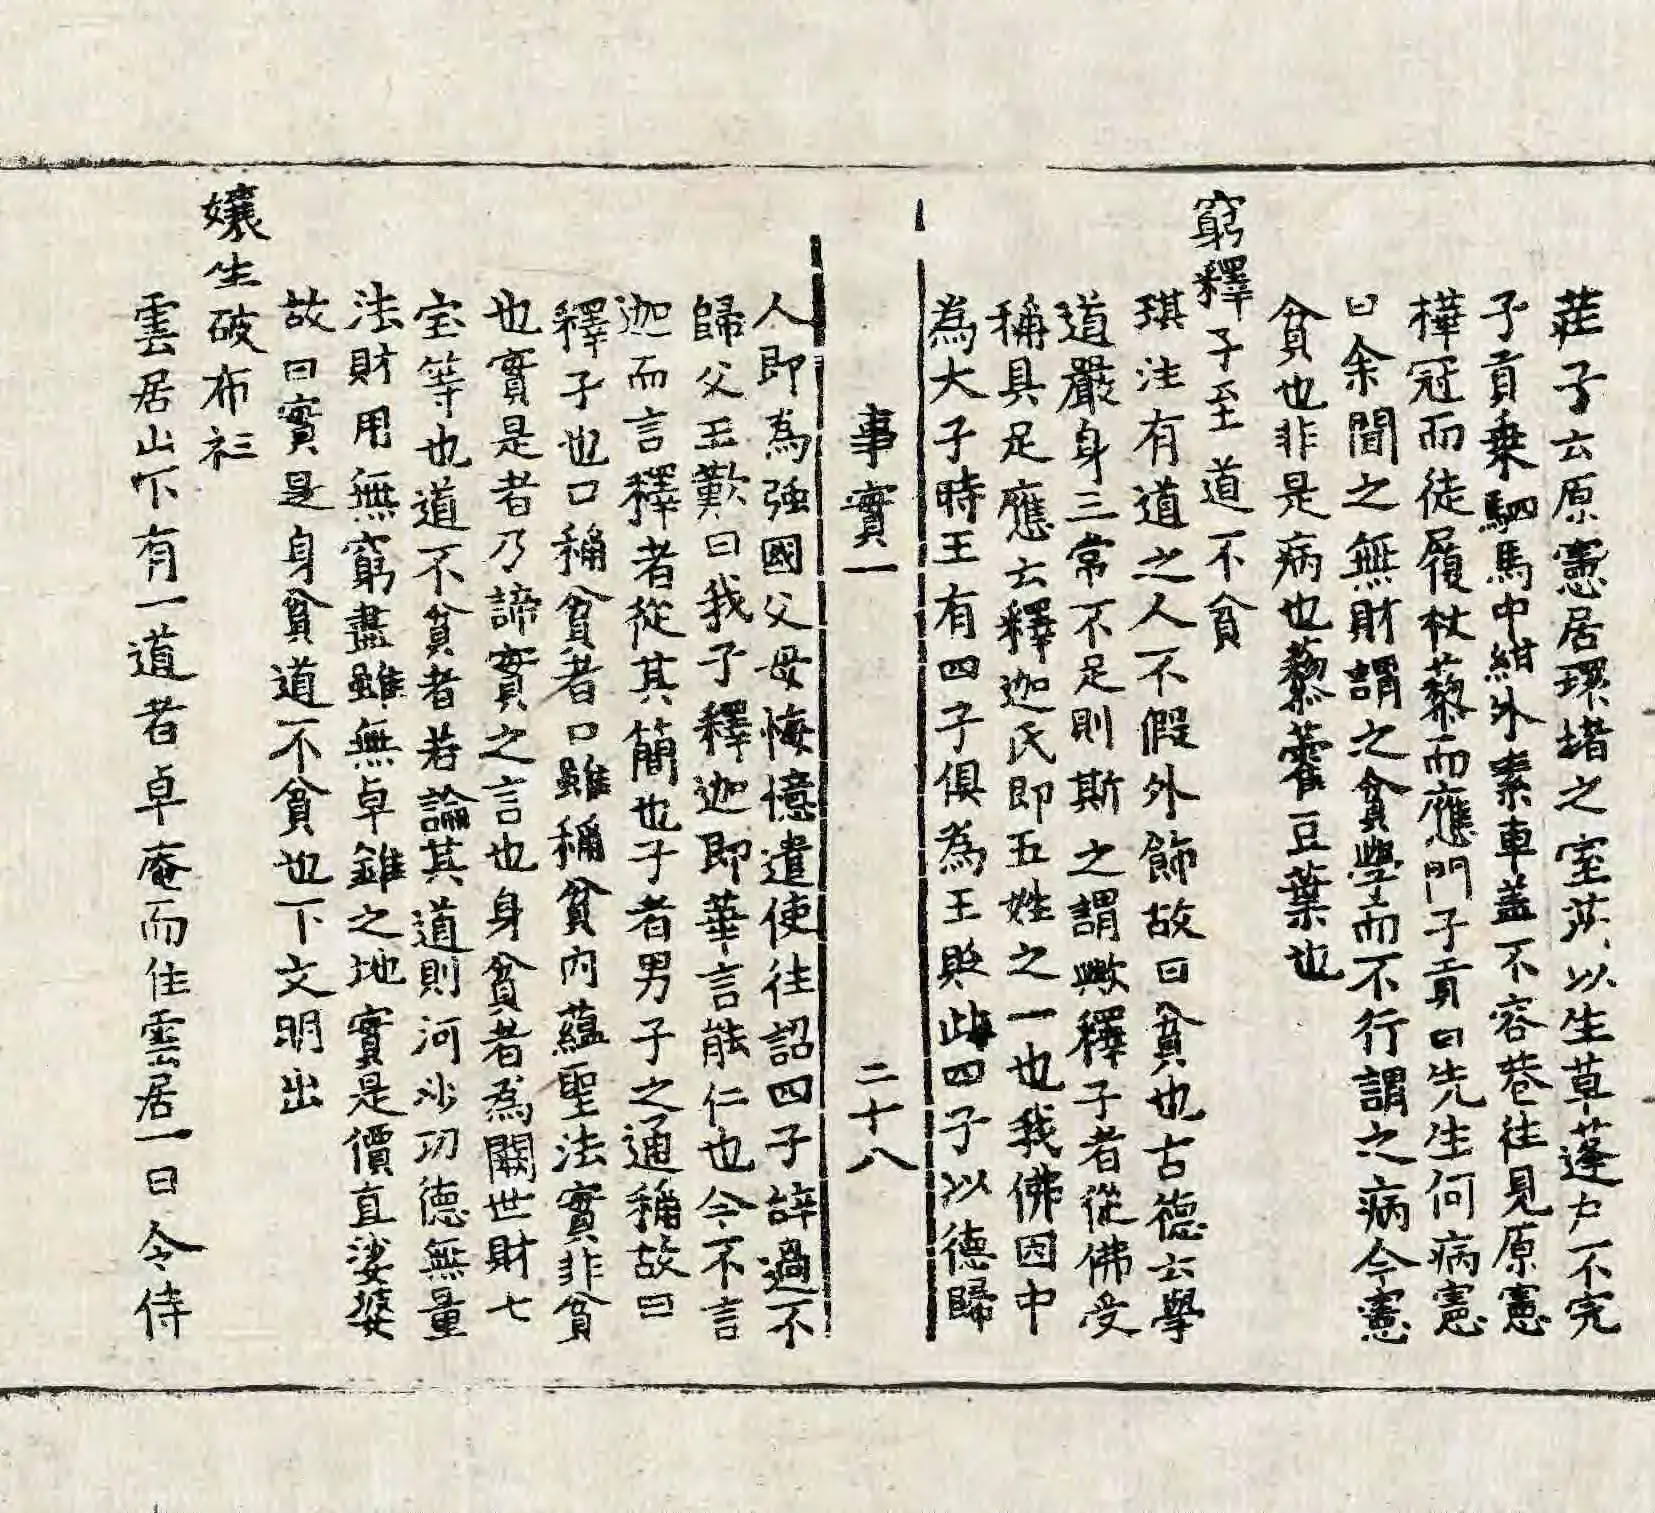 莊子云原憲居環堵之室茨以生草蓬户不完
子貢乗駟馬中紺外素車盖不容巷往見原憲
樺冠而徒履杖藜而應門子貢曰先生何病憲
曰余聞之無財謂之貧學而不行謂之病今憲
貧也非是病也藜藿豆葉也
窮釋子至道不貧
琪注有道之人不假外飾故曰貧也古德云學
道嚴身三常不足則斯之謂歟釋子者從佛受
稱具足應云釋迦氏即五姓之一也我佛因中
為大子時王有四子俱為王貶此四子以德歸
事實一 二十八
人即為強國父母悔憶遣使往詔四子辝過不
歸父王歎曰我子釋迦即華言能仁也今不言
迦而言釋者從其簡也子者男子之通稱故曰
釋子也口稱貧者口雖稱貧内蘊聖法實非貧
也實是者乃諦實之言也身貧者為闕世財七
宝等也道不貧者若論其道則河沙功德無量
法財用無窮盡雖無卓錐之地實是價直娑婆
故曰實是身貧道不貧也下文明出
孃生破布衫
雲居山下有一道者卓庵而住雲居一日令侍